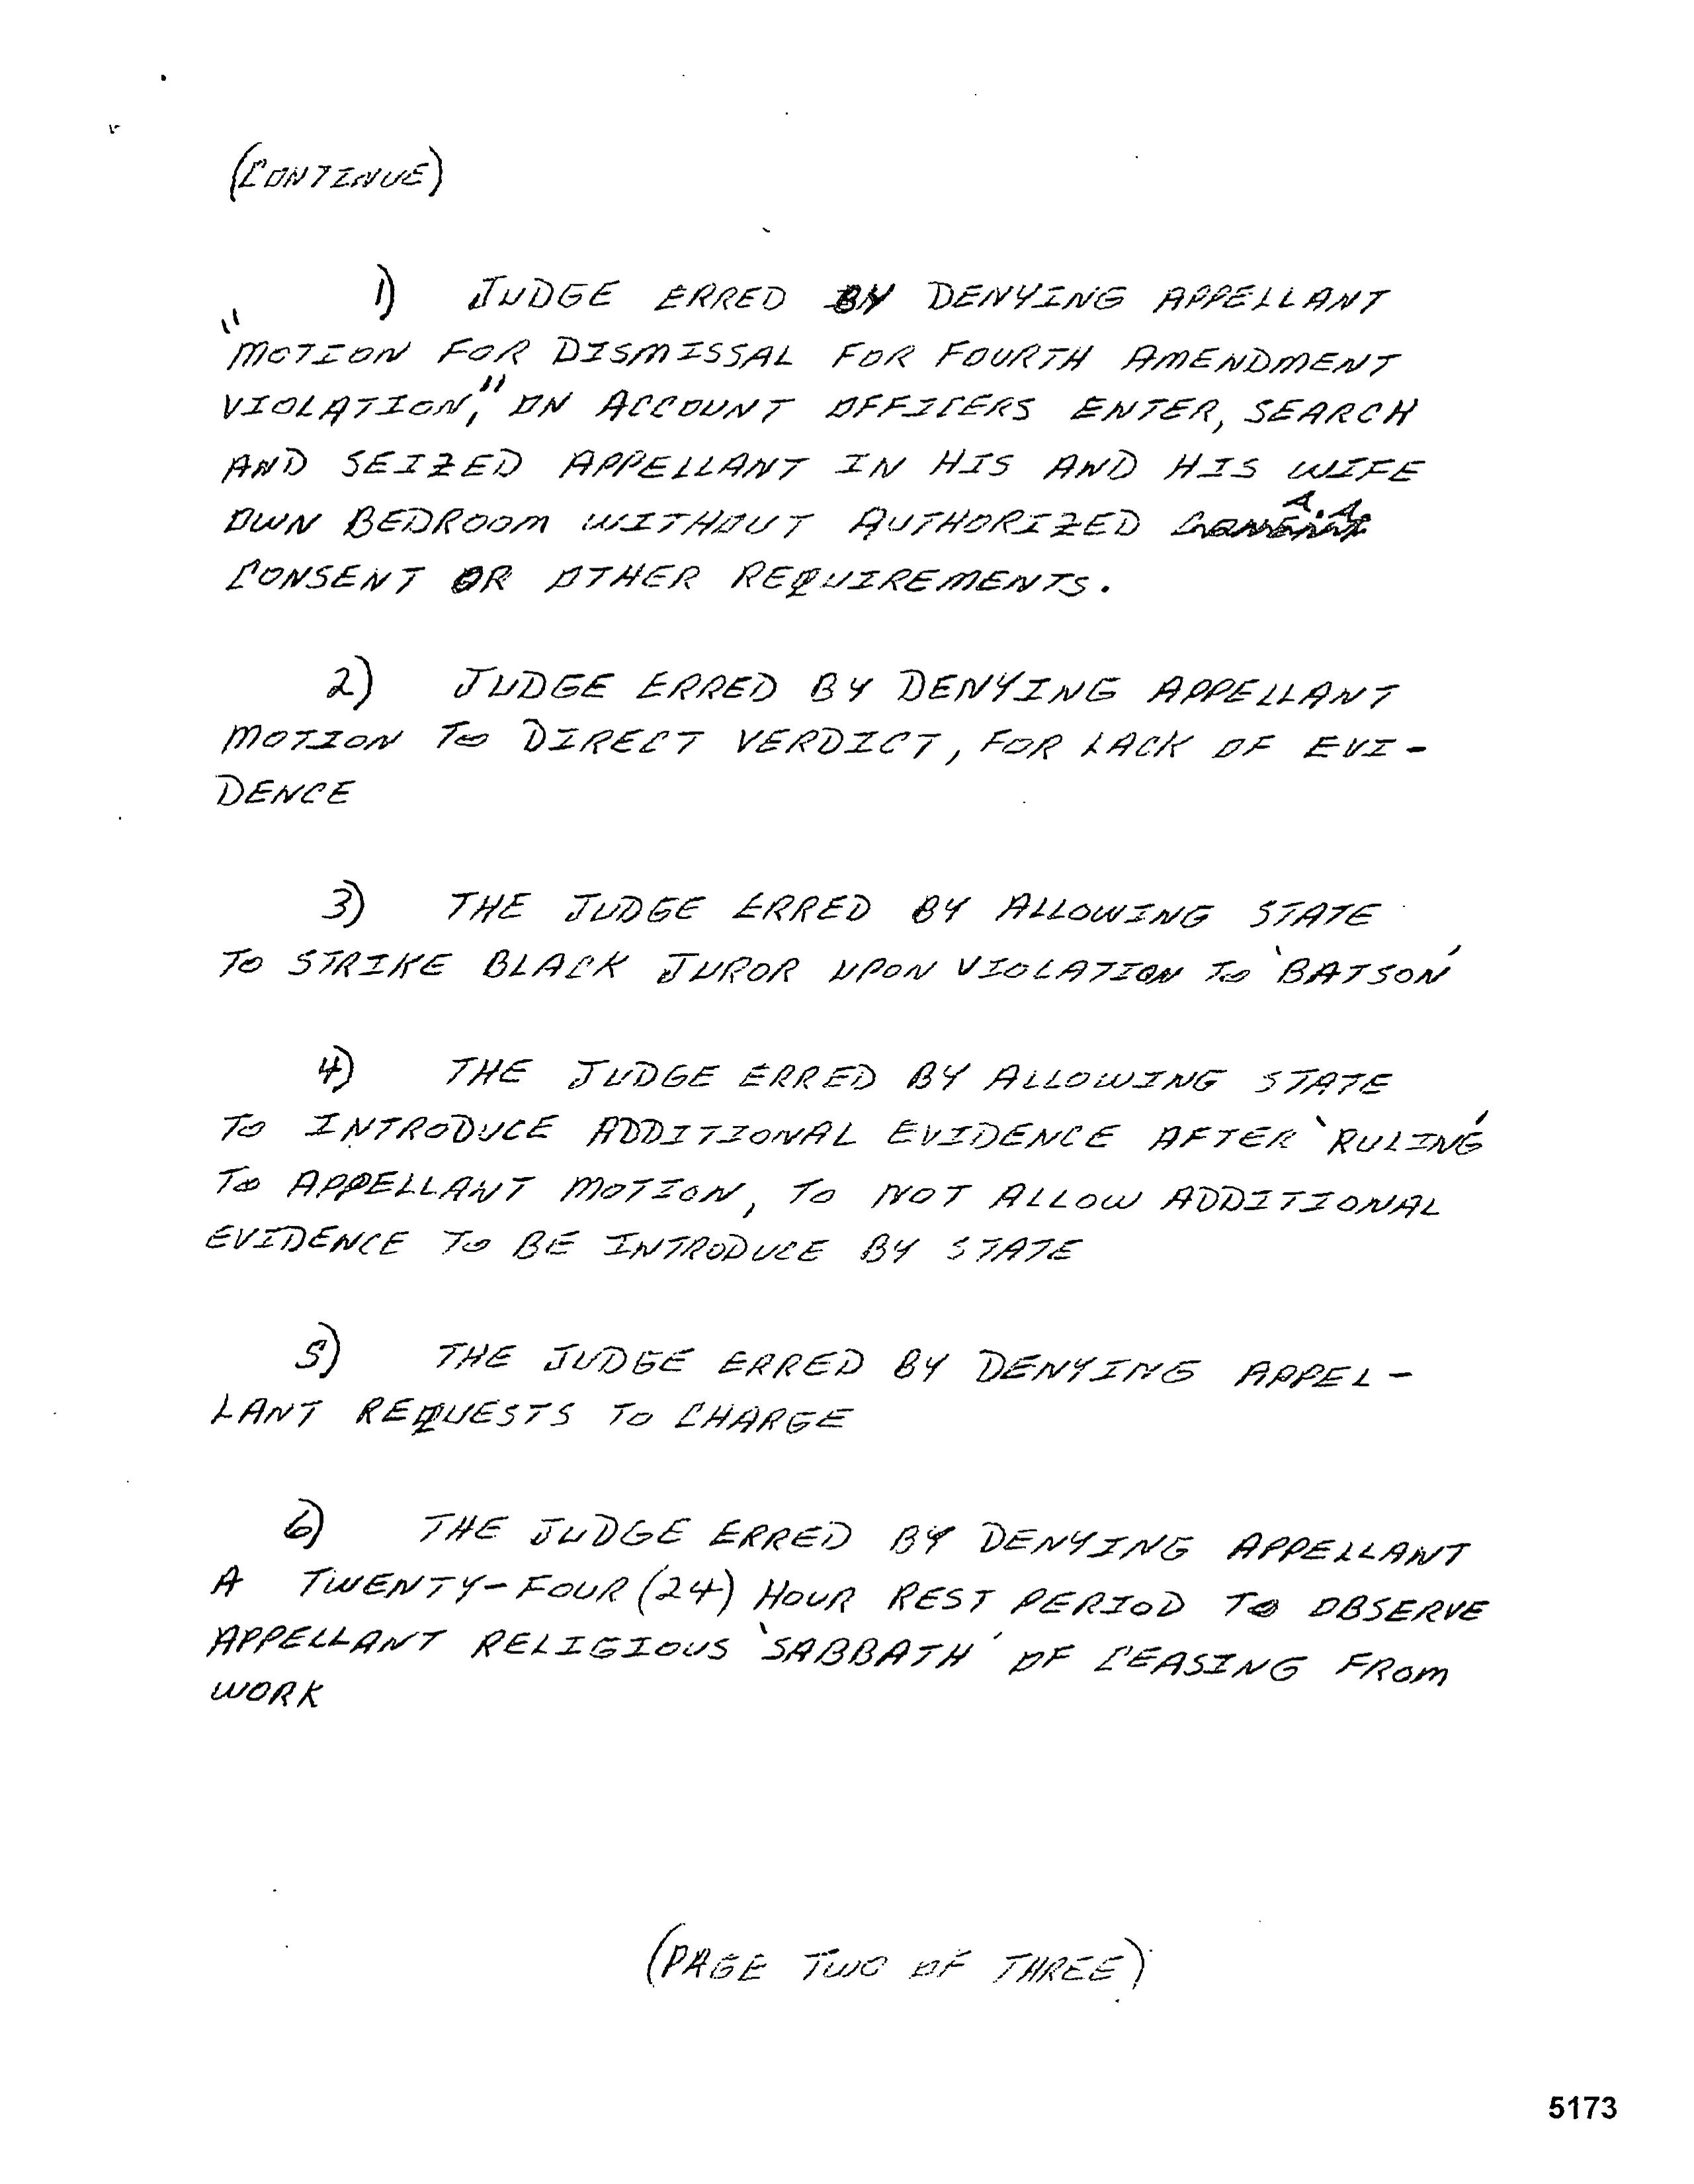 (CONTINUE)
1) JUDGE ERRED BY DENYING APPELLANT
"MOTION FOR DISMISSAL FOR FOURTH AMENDMENT
VIOLATION," ON ACCOUNT OFFICERS ENTER, SEARCH
AND SEIZED APPELLANT IN HIS AND HIS WIFE
A.A.
OWN BEDROOM WITHOUT AUTHORIZED
CONSENT OR OTHER REQUIREMENTS.
2) JUDGE ERRED BY DENYING APPELLANT
MOTION TO DIRECT VERDICT, FOR LACK OF EVI-
DENCE
3) THE JUDGE ERRED BY ALLOWING STATE
TO STRIKE BLACK JUROR UPON VIOLATION TO 'BATSON'
4) THE JUDGE ERRED BY ALLOWING STATE
TO INTRODUCE ADDITIONAL EVIDENCE AFTER 'RULING'
TO APPELLANT MOTION, TO NOT ALLOW ADDITIONAL
EVIDENCE TO BE INTRODUCE BY STATE
5) THE JUDGE ERRED BY DENYING APPEL-
LANT REQUESTS TO CHARGE
6) THE JUDGE ERRED BY DENYING APPELLANT
A TWENTY-FOUR (24) HOUR REST PERIOD TO OBSERVE
APPELLANT RELIGIOUS 'SABBATH' OF CEASING FROM
WORK
(PAGE TWO OF THREE)
5173